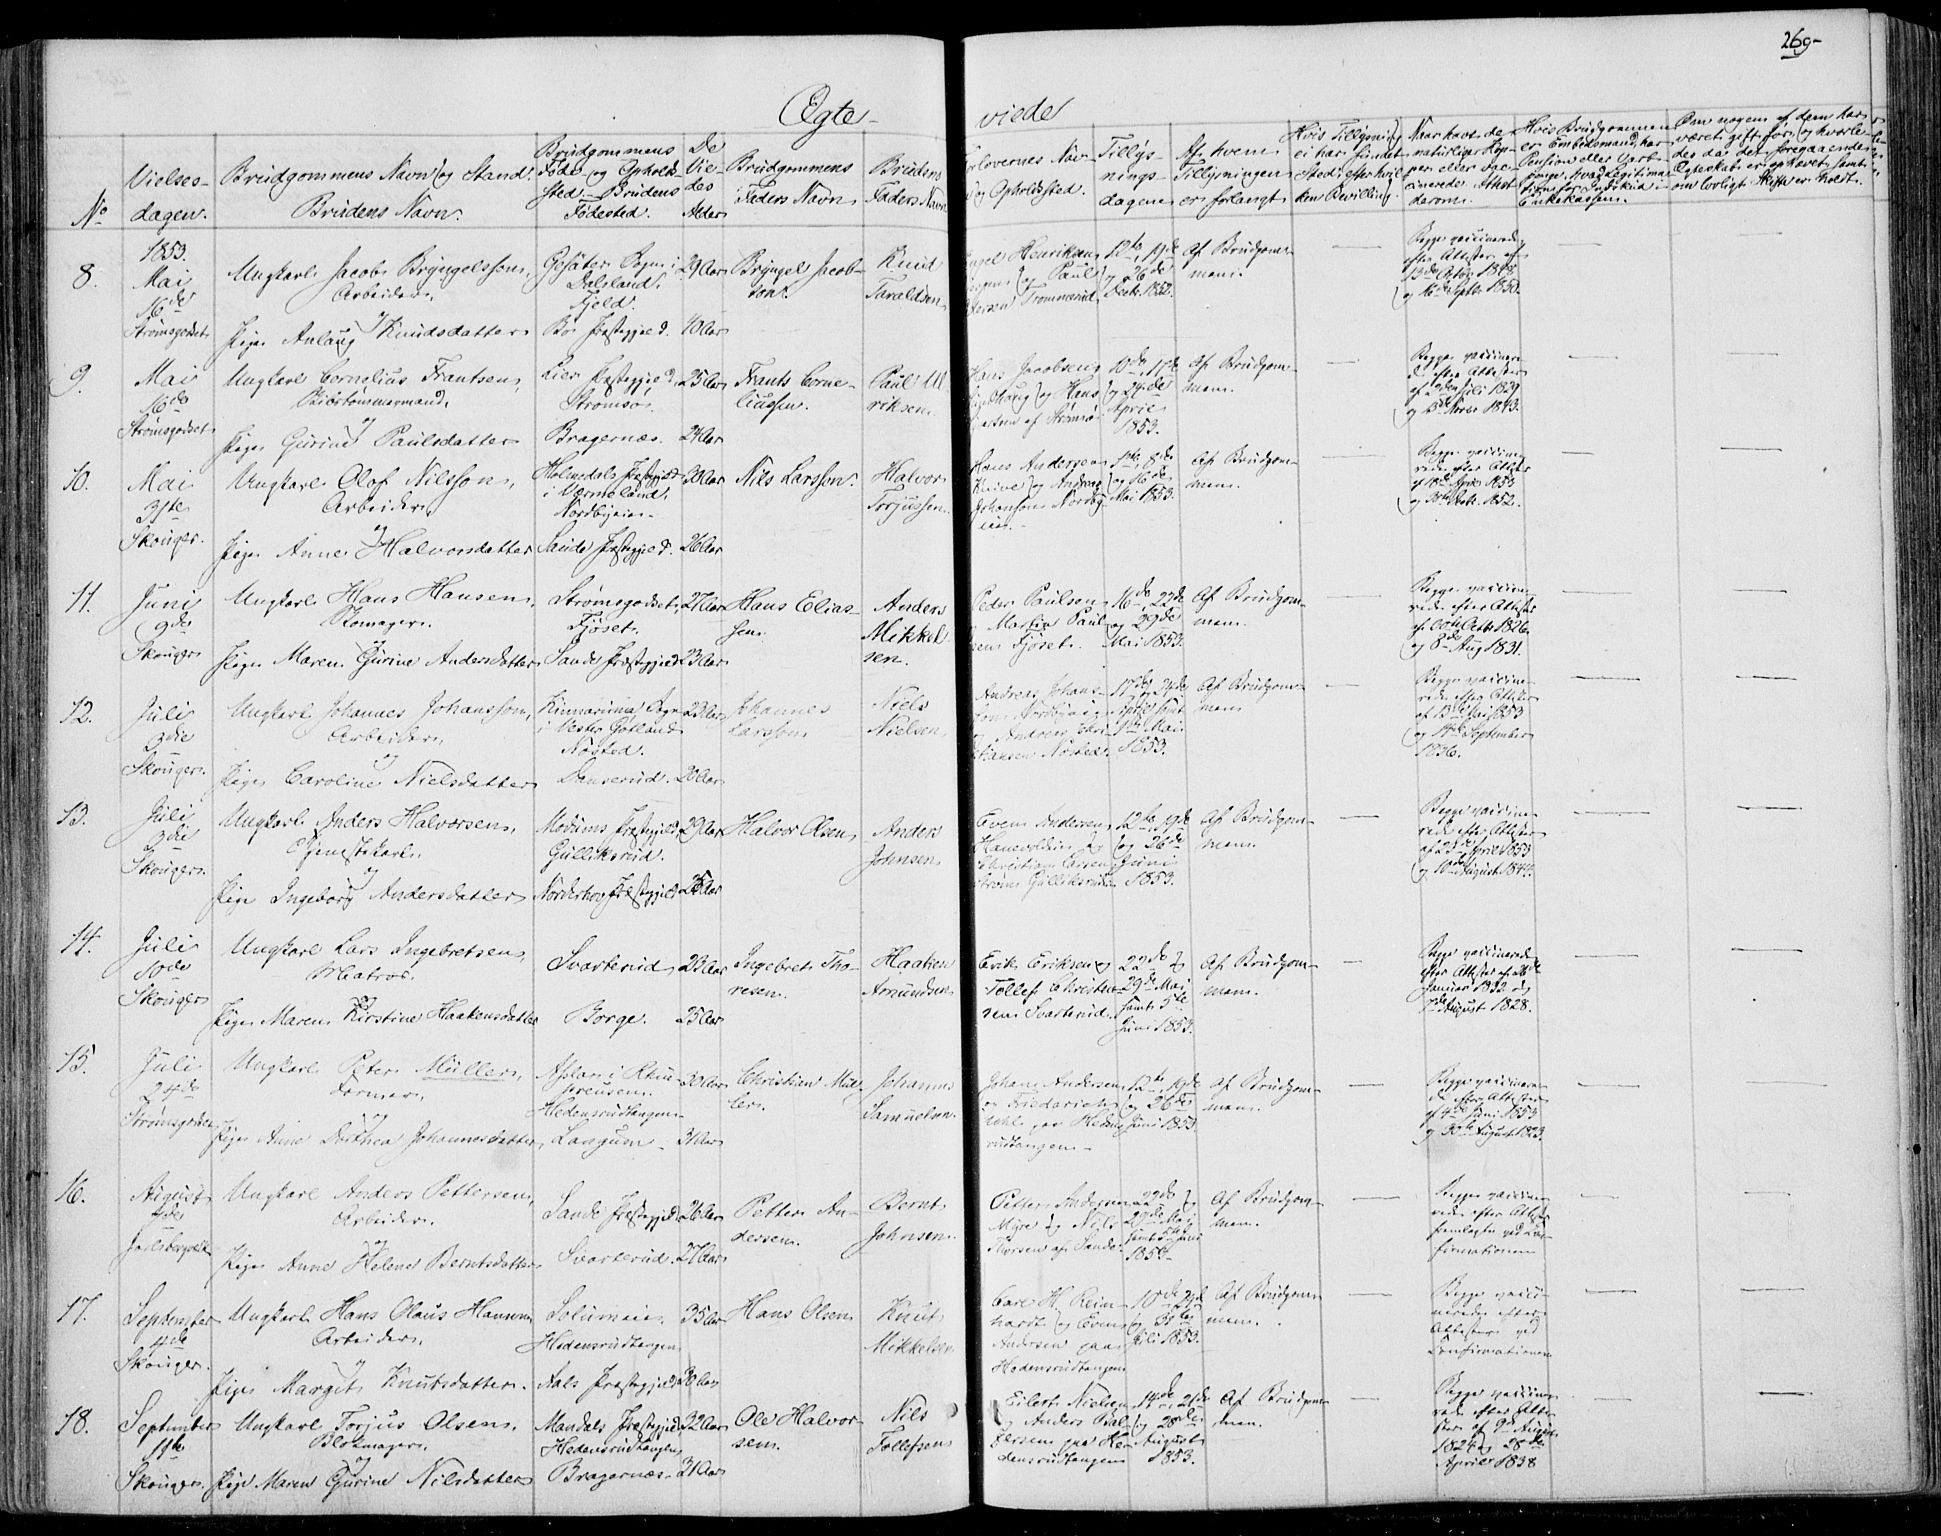 269-
Ægte-
viede
No
Vielses-
dagen.
Brudgommens Navn og Stand.
Brudens Navn.
Brudgommens
Føde- og Opholds-
sted - Brudens
Fødested.
De
Vie-
des
Alder
Brudgommens
Faders Navn
Brudens
Faders Navn
Forlovernes Navn
og Opholdssted.
Tillys-
nings-
dagene
Af hvem
Tillysningen
er forlangt
Hvis Tillysning
ei har fundet
Sted, efter hvil-
ken Bevilling.
Naar havt de
naturlige Kop-
per eller vac-
cinerede. Attest
derom.
Hvis Brudgommen
er Embedsmand, har
Pension eller Vart-
penge,
til
Enkekassen.
Om nogen af dem har
været gift før, og hvorle-
des da det foregaaende
Ægteskab er ophævet, samt
om lovligt Skifte er holdt.
8.
1853.
Mai
16de
Strømsgodset
Ungkarl Jacob Bryngelsson,
Arbeider,
og
Pige Anlaug Knudsdatter
Gesäter Sogn i
Dalsland.
Fjeld.
Bø Præstegjeld.
29 Aar
40 Aar
Bryngel Jacob-
son.
Knud
Taraldsen
Henriksen
og Paul
Trommerud.
12te, 19de
og 26de
Decbr. 1852.
Af Brudgom-
men.
Begge vaccinerede
efter Attester af
13de Octbr 1848
og 16de Septbr. 1850.
9.
Mai
16de
Strømsgodset
Ungkarl Cornelius Frantsen,
Skibstømmermand,
og
Pige Gurine Paulsdatter
Lier Præstegjeld,
Strømsø.
Bragernæs.
25 Aar
24 Aar
Frants Corne-
liussen.
Paul Ul-
riksen.
Hans Jacobsen
og Hans
af Strømsø
10de, 17de
og 24de
April
1853.
Af Brudgom-
men.
Begge vaccinere-
de efter Attester
af 9de Juli 1829
og 1843.
10.
Mai
31te
Skouger.
Ungkarl Olof Nilsson,
Arbeider,
og
Pige Anne Halvorsdatter
Holmedals Præstegjeld
i Værmeland.
Nordbyeie-
Sande Præstegjeld.
30 Aar
26 Aar
Nils Larsson.
Halvor
Torjussen.
Hans Andersen
Knive og Andreas
Johanson Nordby-
eie.
1te, 8de
og 16de
Mai 1853.
Af Brudgom-
men.
Begge vaccine-
rede efter Attester
af 18de April 1853
og 30te Octbr. 1852.
11.
Juni
9de
Skouger
Ungkarl Hans Hansen,
Skomager.
Pige Maren Gurine Andersdatter
Strømsgodset,
Fjøset.
Sande Præstegjeld
27 Aar
23 Aar
Hans Elias-
sen.
Anders
Mikkel-
sen.
Peder Paulsen
Martin Paul-
sen Fjøset.
16de, 22de
og 29de
Mai 1853.
Af Brudgom-
men.
Begge vaccine-
rede efter Attester
af Octbr 1826
og 8de Aug 1831.
12.
Juli
3die
Skouger.
Ungkarl Johannes Johansson,
Arbeider,
og
Pige Caroline Nielsdatter
Kinnaruma Sogn
i Vester Gøtland
Nøsted.
Danserud.
23 Aar
20 Aar
Johannes
Larsson
Niels
Nielsen
Andreas Johans-
son Nordbyeie
og Andreas Chri-
stiansen Nøsted
17de, 24de
April samt
1te Mai
1853.
Af Brudgom-
men
Begge vaccine-
rede efter Attester
af 13de Mai 1853
og 14de September
1836.
13.
Juli
3die
Skouger.
Ungkarl Anders Halvorsen,
Tjenestekarl,
og
Pige Ingeborg Andersdatter
Modums Præstegjeld,
Gulliksrud.
Norderhov Præstegjeld
29 Aar
25 Aar
Halvor Olsen
Anders
Johnsen
Even Andersen
og
Christian Larsen
Strøm Gulliksrud.
12te, 19de
og 26de
Juni
1853.
Af Brudgom-
men.
Begge vaccine-
rede efter Attester
af 25de April 1853
og 10de August 1844.
14.
Juli
10de
Skouger
Ungkarl Lars Ingebretsen,
Matros.
og
Pige Maren Kirstine Haakensdatter
Svarterud
Borge.
23 Aar
25 Aar
Ingebret Tho-
resen.
Haaken
Amundsen
Erik Eriksen og
Tollef Christen-
sen Svarterud.
22de og
29de Mai
samt 5te
Juni 1853.
Af Brudgom-
men.
Begge vaccinerede
efter Attester af
Januar 1832 og
7de August 1828.
15.
Juli
24de
Strømsgodset
Ungkarl Peter Müller,
Former,
og
Pige Anne Dorthea Johannesdatter
Asslar i Rhin-
preusen.
Hedensrudtangen
Langum-
30 Aar
31 Aar
Christian Mül-
ler.
Johannes
Samuelsen.
Johan Andersen
og Friederich
paa Hedens-
rudtangen.
12te, 19de
og 26de
Juni 1853
Af Brudgom-
men.
Begge vaccinere-
de efter Attester
af 4de Juni 1853
og 30te August 1823.
16.
August
7de
Jarlsbergværk
Ungkarl Anders Pettersen,
Arbeider.
og
Pige Anne Helene Berntsdatter
Sande Præstegjeld
Svarterud.
26 Aar
27 Aar
Petter An-
dersen.
Bernt
Johnsen.
Petter Andersen
Myre og Nils
Thorsen af Sande.
22de og
29de Mai
samt 5te Juni
1853.
Af Brudgom-
men.
Begge vaccine-
rede efter Attester
fremlagte ved Con-
firmationen
17.
September
4de
Skouger.
Ungkarl Hans Olaus Hansen,
Arbeider.
og
Pige Margit Knutsdatter.
Solumeie
Hedensrudtangen
Aals Præstegjeld
35 Aar
30 Aar
Hans Olsen
Knut
Mikkelsen
Carl H. Rein-
hardt og Even
Andersen paa
Hedensrudtangen
10de, 24de
og 31te
Juli 1853.
Af Brudgom-
men.
Begge vacci-
nerede efter
Attester ved
Confirmationen
18.
September
11te
Skouger.
Ungkarl Torjus Olsen,
Blokmager.
og
Pige Maren Gurine Nilsdatter
Mandals Præstegjeld
Hedensrudtangen
Bragernæs-
32 Aar
31 Aar
Ole Halvor-
sen.
Nils
Tollefsen
Eilert Nielsen
og Anders Bal-
zersen paa He-
densrudtangen
14de, 21de
og 28de
August
1853.
Af Brudgom-
men.
Begge vaccine-
rede efter Atte-
ster af 9de August
1824 og 28de
April 1838